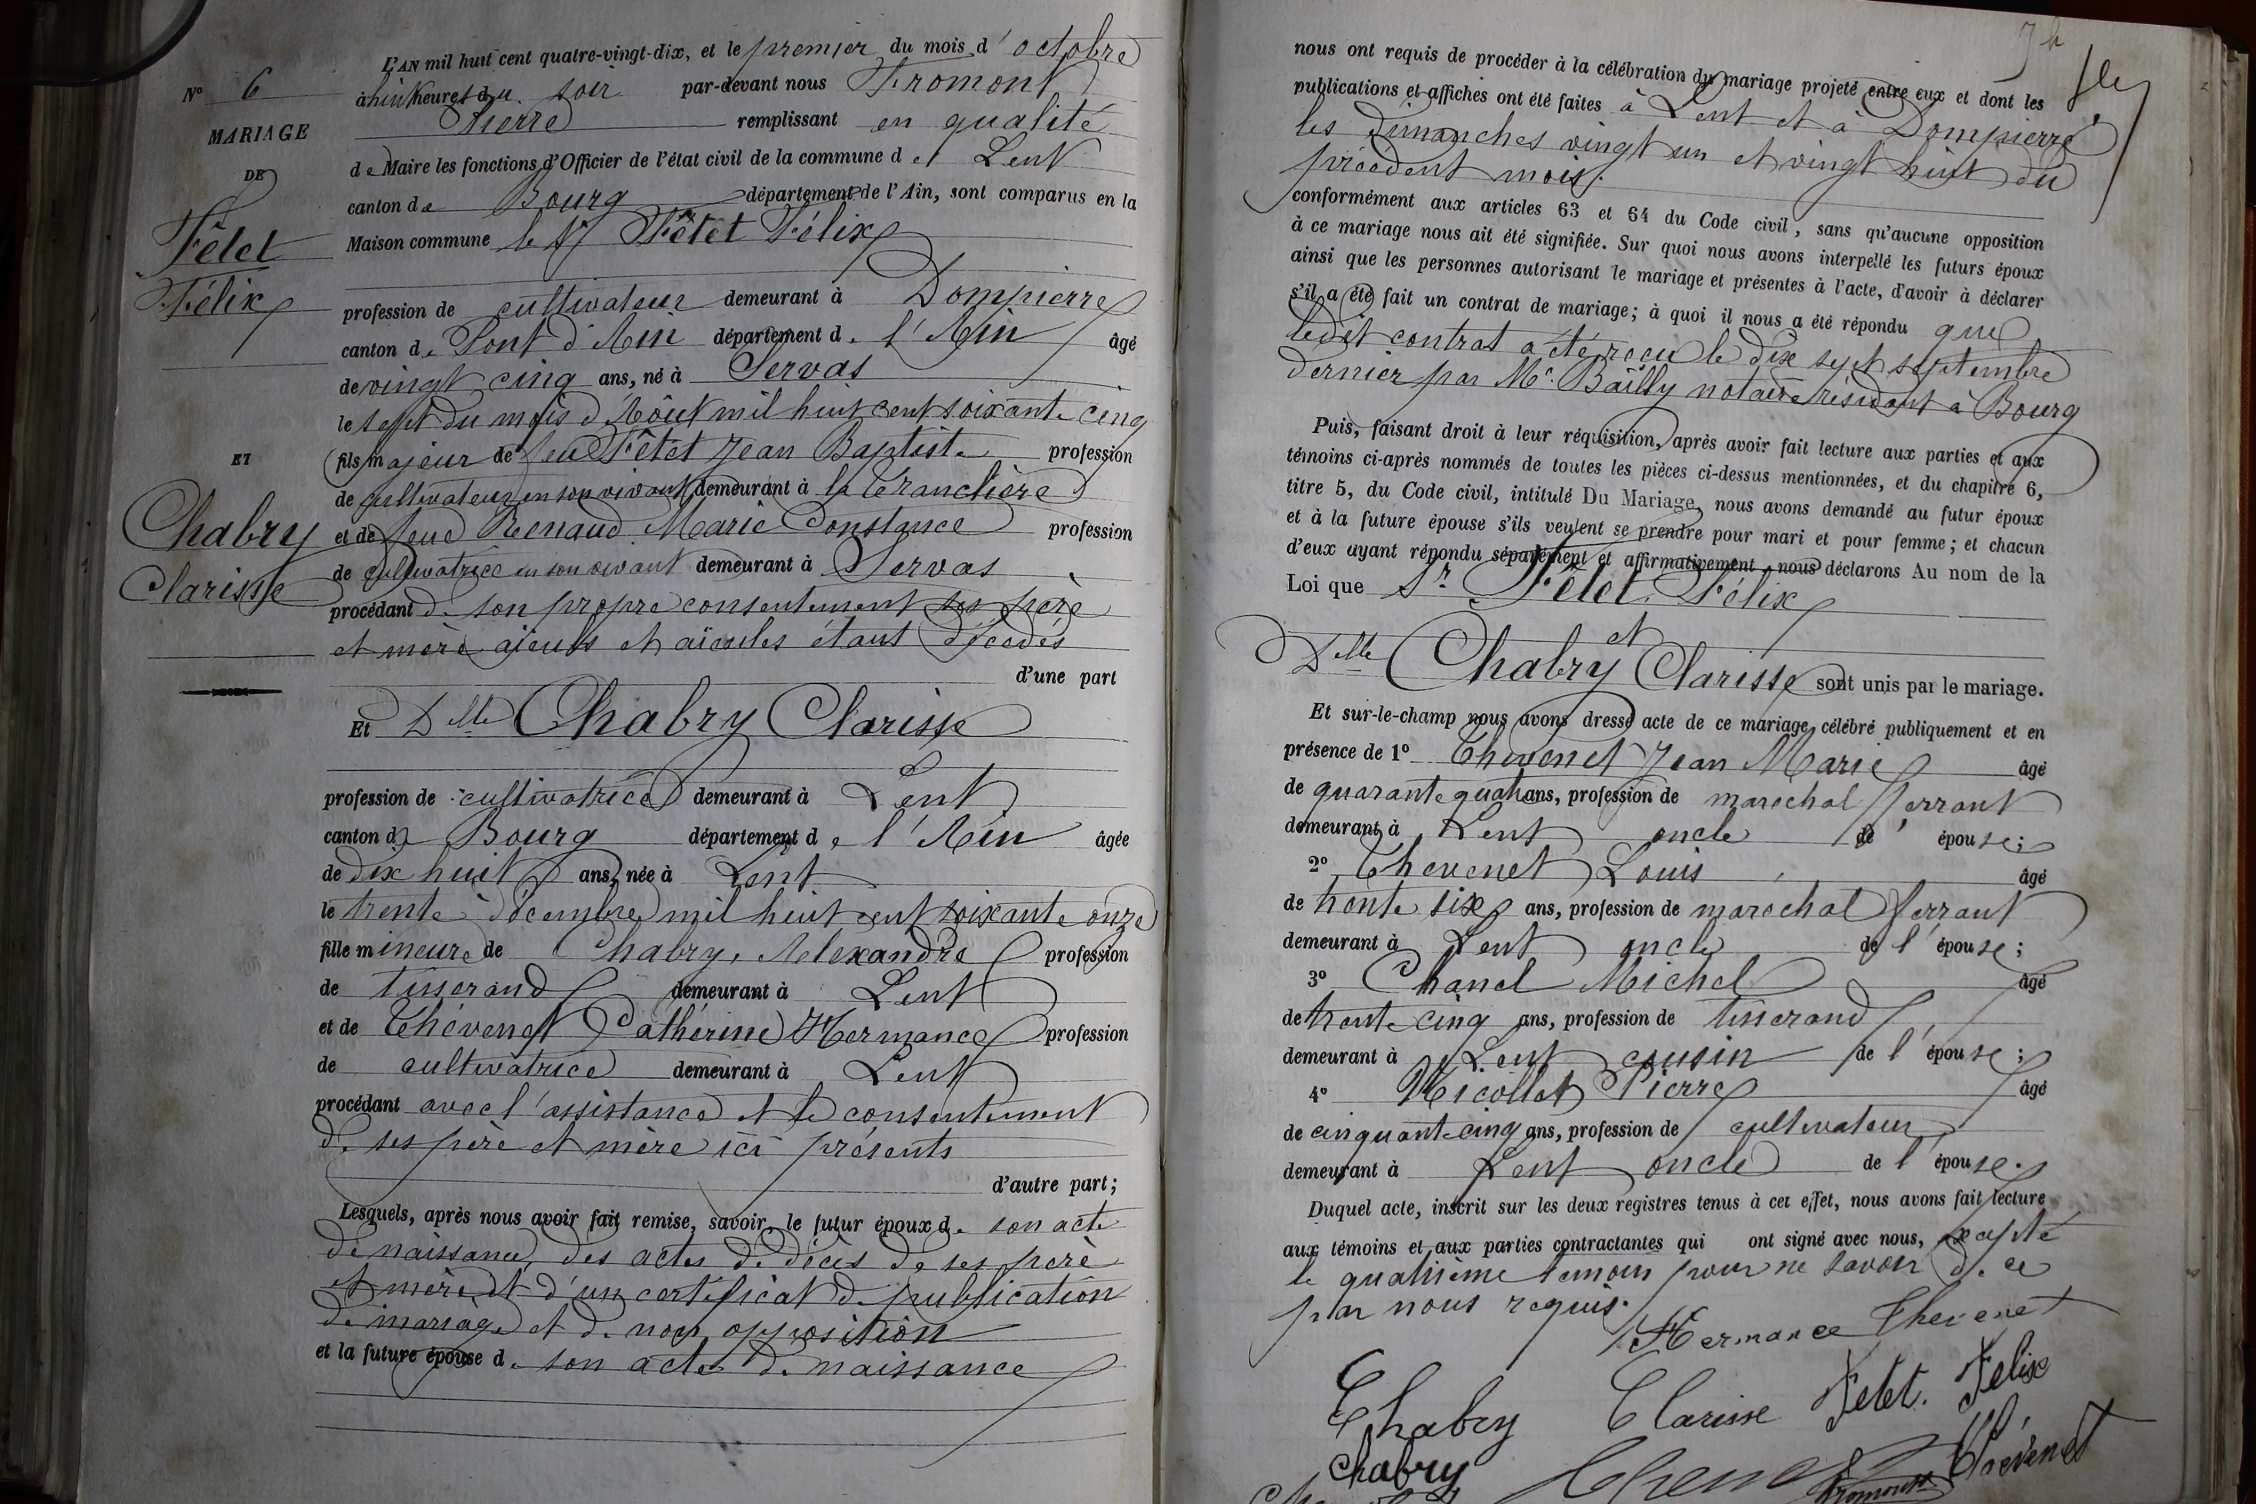 L'AN mil huit cent quatre-vingt-dix, et le premier du mois d'octobre
à huit heures du soir par-devant nous Fromont
Pierre remplissant en qualité
de Maire les fonctions d'Officier de l'état civil de la commune d et Lent
canton de Bourg département de l'Ain, sont comparus en la
Maison commune le Sr Fêtet Félix
profession de cultivateur demeurant à Dompierre
canton de Pont d'Ain département de l'Ain âgé
de vingt cinq ans, né à Servas
le sept du mois d'Août mil huit cent soixante cinq
fils majeur de feu Fêtet Jean Baptiste profession
de cultivateur en son vivant demeurant à la Tranclière
et de feue Renaud Marie Constance profession
de cultivatrice en son vivant demeurant à Servas
procédant de son propre consentement ses père
et mère aïeuls et aïeules étant décédés
d'une part
Et Delle Chabry Clarisse
profession de cultivatrice demeurant à Lent
canton de Bourg département de l'Ain âgée
de dix huit ans, née à Lent
le trente décembre mil huit cent soixante onze
fille mineure de Chabry Alexandre profession
de tisserand demeurant à Lent
et de Thévenet Cathérine Hermance profession
de cultivatrice demeurant à Lent
procédant avec l'assistance et le consentement
de ses père et mère ici présents
d'autre part;
Lesquels, après nous avoir fait remise, savoir, le futur époux de son acte
de naissance, des actes de décès de ses père
et mère et d'un certificat de publication
de mariage et de non opposition
et la future épouse de son acte de naissance
No 6
MARIAGE
DE
Fêtet
Félix
ET
Chabry
Clarisse
nous ont requis de procéder à la célébration du mariage projeté entre eux et dont les
publications et affiches ont été faites à Lent et à Dompierre
les dimanches vingt un et vingt huit du
précédent mois.
conformément aux articles 63 et 64 du Code civil, sans qu'aucune opposition
à ce mariage nous ait été signifiée. Sur quoi nous avons interpellé les futurs époux
ainsi que les personnes autorisant le mariage et présentes à l'acte, d'avoir à déclarer
s'il a été fait un contrat de mariage; à quoi il nous a été répondu que
ledit contrat a été reçu le dix sept septembre
dernier par Me Bailly notaire résidant à Bourg
Puis, faisant droit à leur réquisition, après avoir fait lecture aux parties et aux
témoins ci-après nommés de toutes les pièces ci-dessus mentionnées, et du chapitre 6,
titre 5, du Code civil, intitulé Du Mariage, nous avons demandé au futur époux
et à la future épouse s'ils veulent se prendre pour mari et pour femme; et chacun
d'eux ayant répondu séparément et affirmativement, nous déclarons Au nom de la
Loi que Sr Fêtet Félix
et
Delle Chabry Clarisse sont unis par le mariage.
Et sur-le-champ nous avons dressé acte de ce mariage célébré publiquement et en
présence de 1º Thevenet Jean Marie âgé
de quarante quatre ans, profession de maréchal ferrant
demeurant à Lent oncle de l'épouse;
2º Thevenet Louis âgé
de trente six ans, profession de maréchal ferrant
demeurant à Lent oncle de l'épouse;
3º Chanel Michel âgé
de trente cinq ans, profession de tisserand
demeurant à Lent cousin de l'épouse;
4º Nicollet Pierre âgé
de cinquante cinq ans, profession de cultivateur
demeurant à Lent oncle de l'épouse.
Duquel acte, inscrit sur les deux registres tenus à cet effet, nous avons fait lecture
aux témoins et aux parties contractantes qui ont signé avec nous, excepté
le quatrième témoin pour ne savoir de ce
par nous requis.
Hermance Thevenet
Chabry Clarisse Fetet. Félix
Chabry Thévenet
Fromont